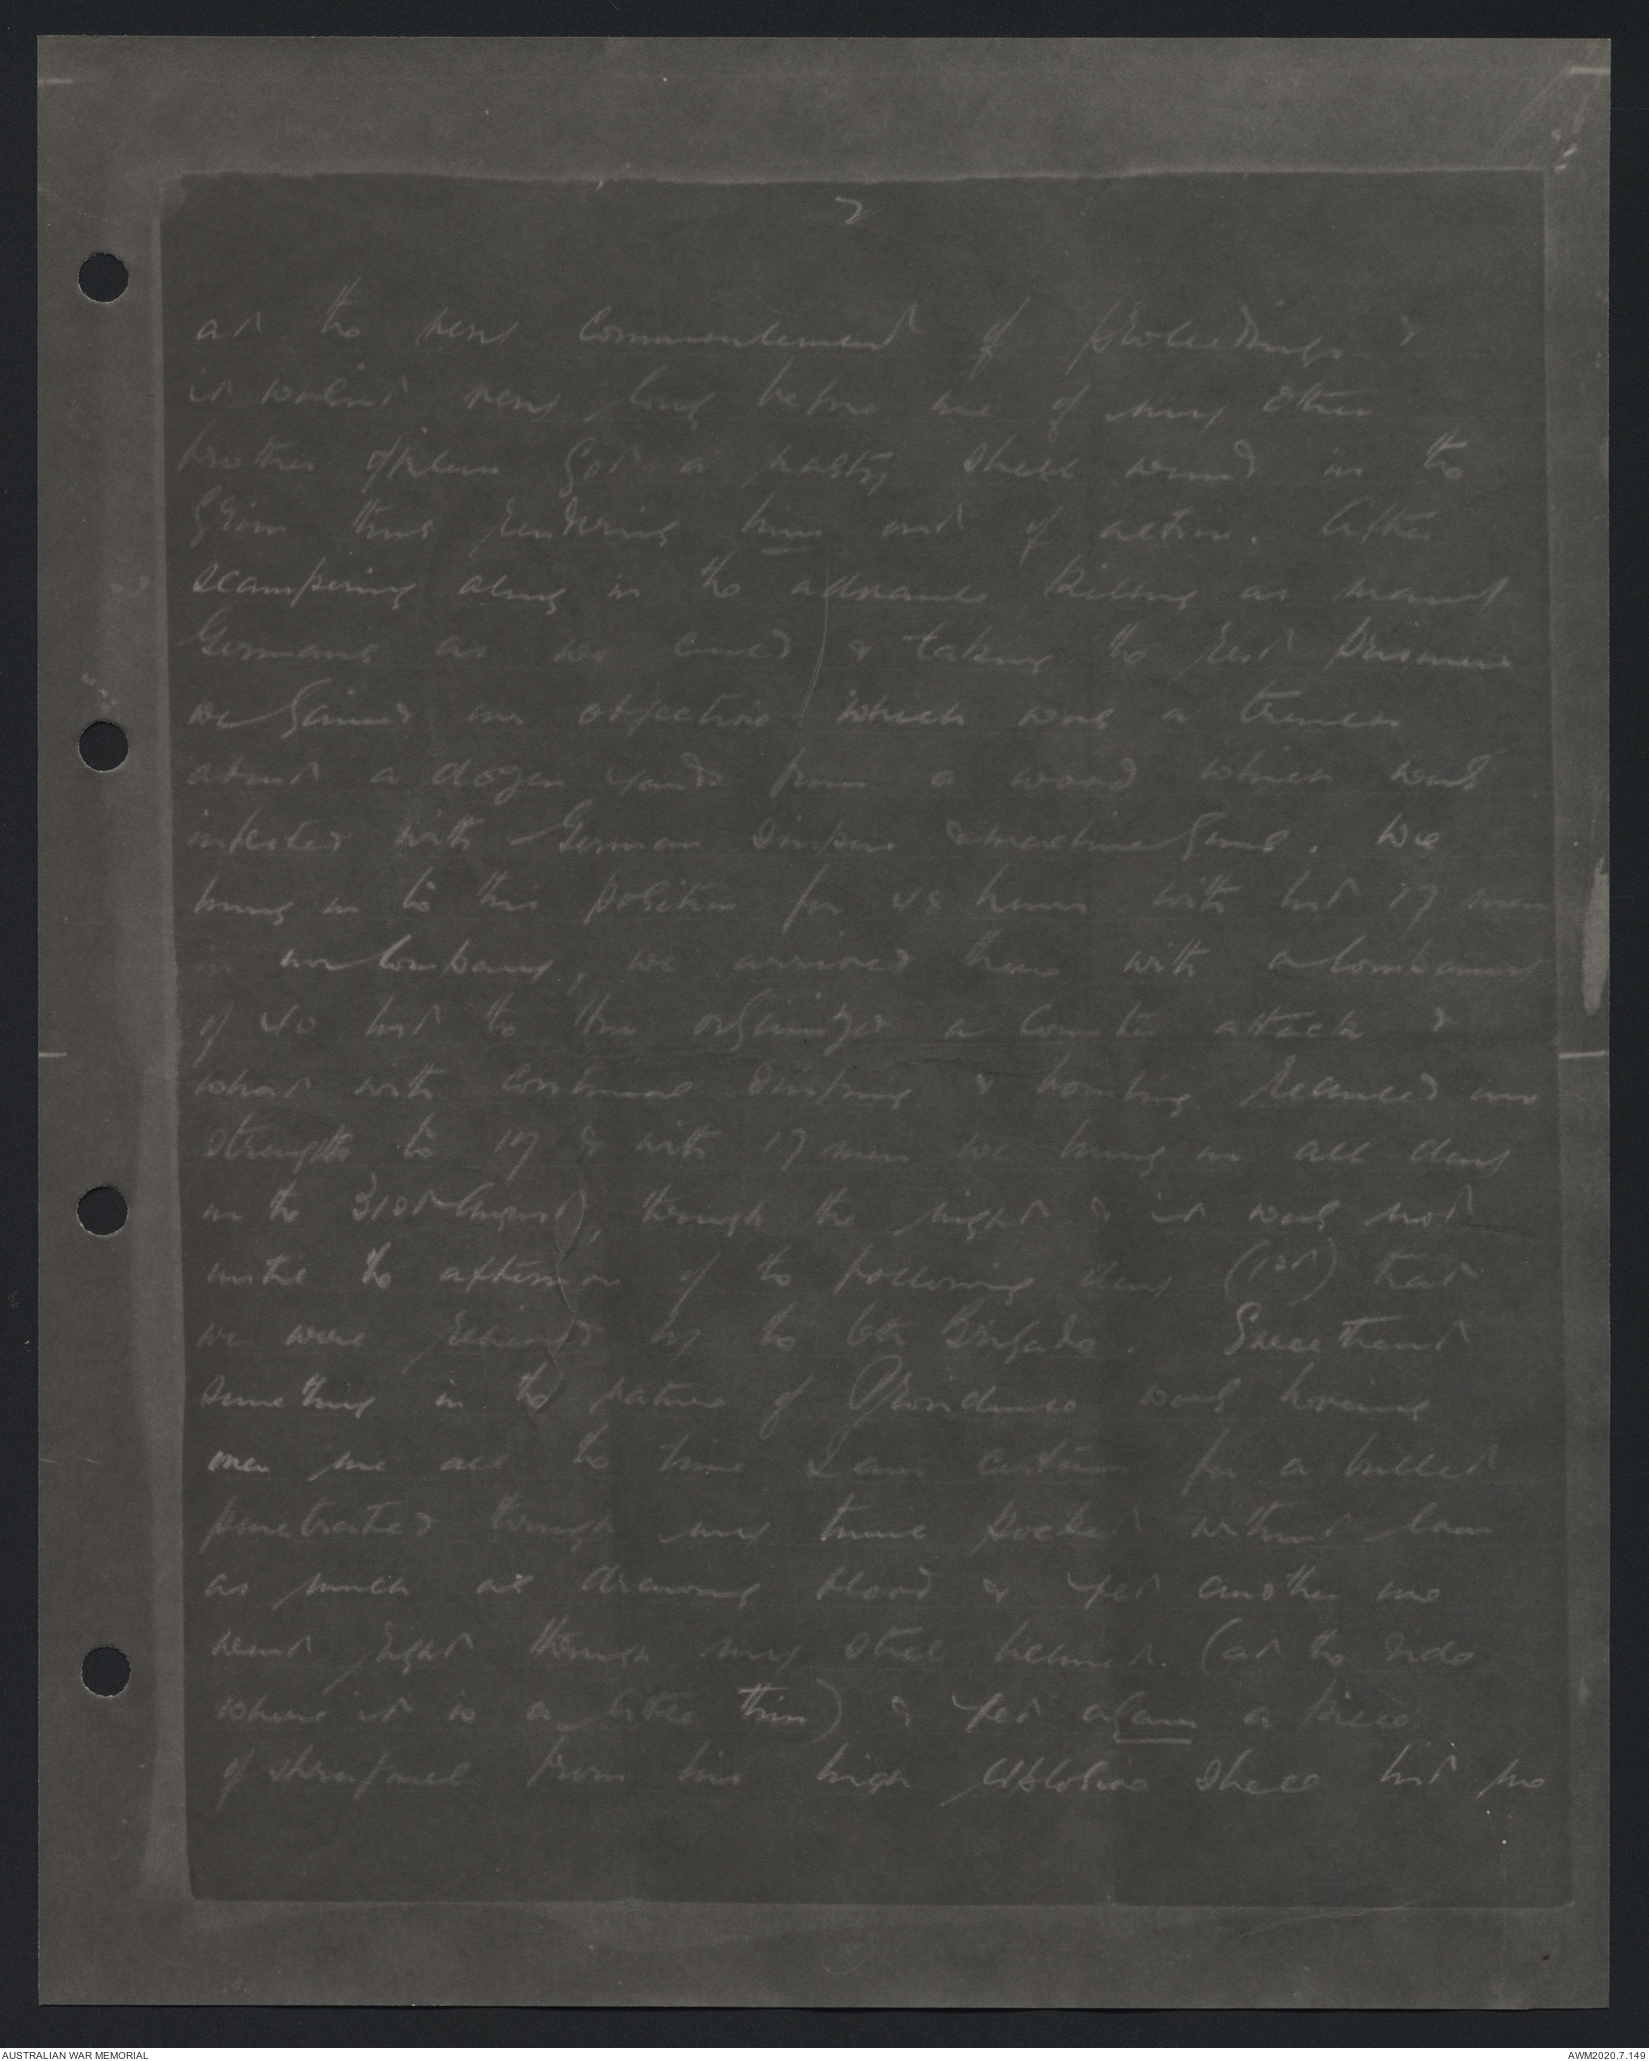 2
at the very commencement of proceedings &
it wasn't very long before one of my other
brother officers got a nasty shell wound in the
groin thus rendering him out of action. After
scampering along in the advance killing as many
Germans as we could & taking the rest prisoners
we gained our objective which was a trench
about a dozen yards from a wood which was
infested with German snipers & machine guns. We
hung on to this position for 48 hours with but 17 men
in our Company, we arrived there with a Company
of 40 but the Hun organized a counter attack &
what with continual sniping & bombing reduced our
strength to 17 & with 17 men we hung on all day
on the 31st August, through the night & it was not
until the afternoon of the following day (1st) that
we were relieved by the 6th Brigade.
something in the nature of Providence was hovering
over me all the time I am certain for a bullet
penetrated through my tunic pocket without
as much as drawing blood & yet another one
went right through my steel helmet (at the side
where it is a little thin) & yet again a piece
of shrapnel from his high explosive shell hit me
AUSTRALIAN WAR MEMORIAL
AWM2020.7.149